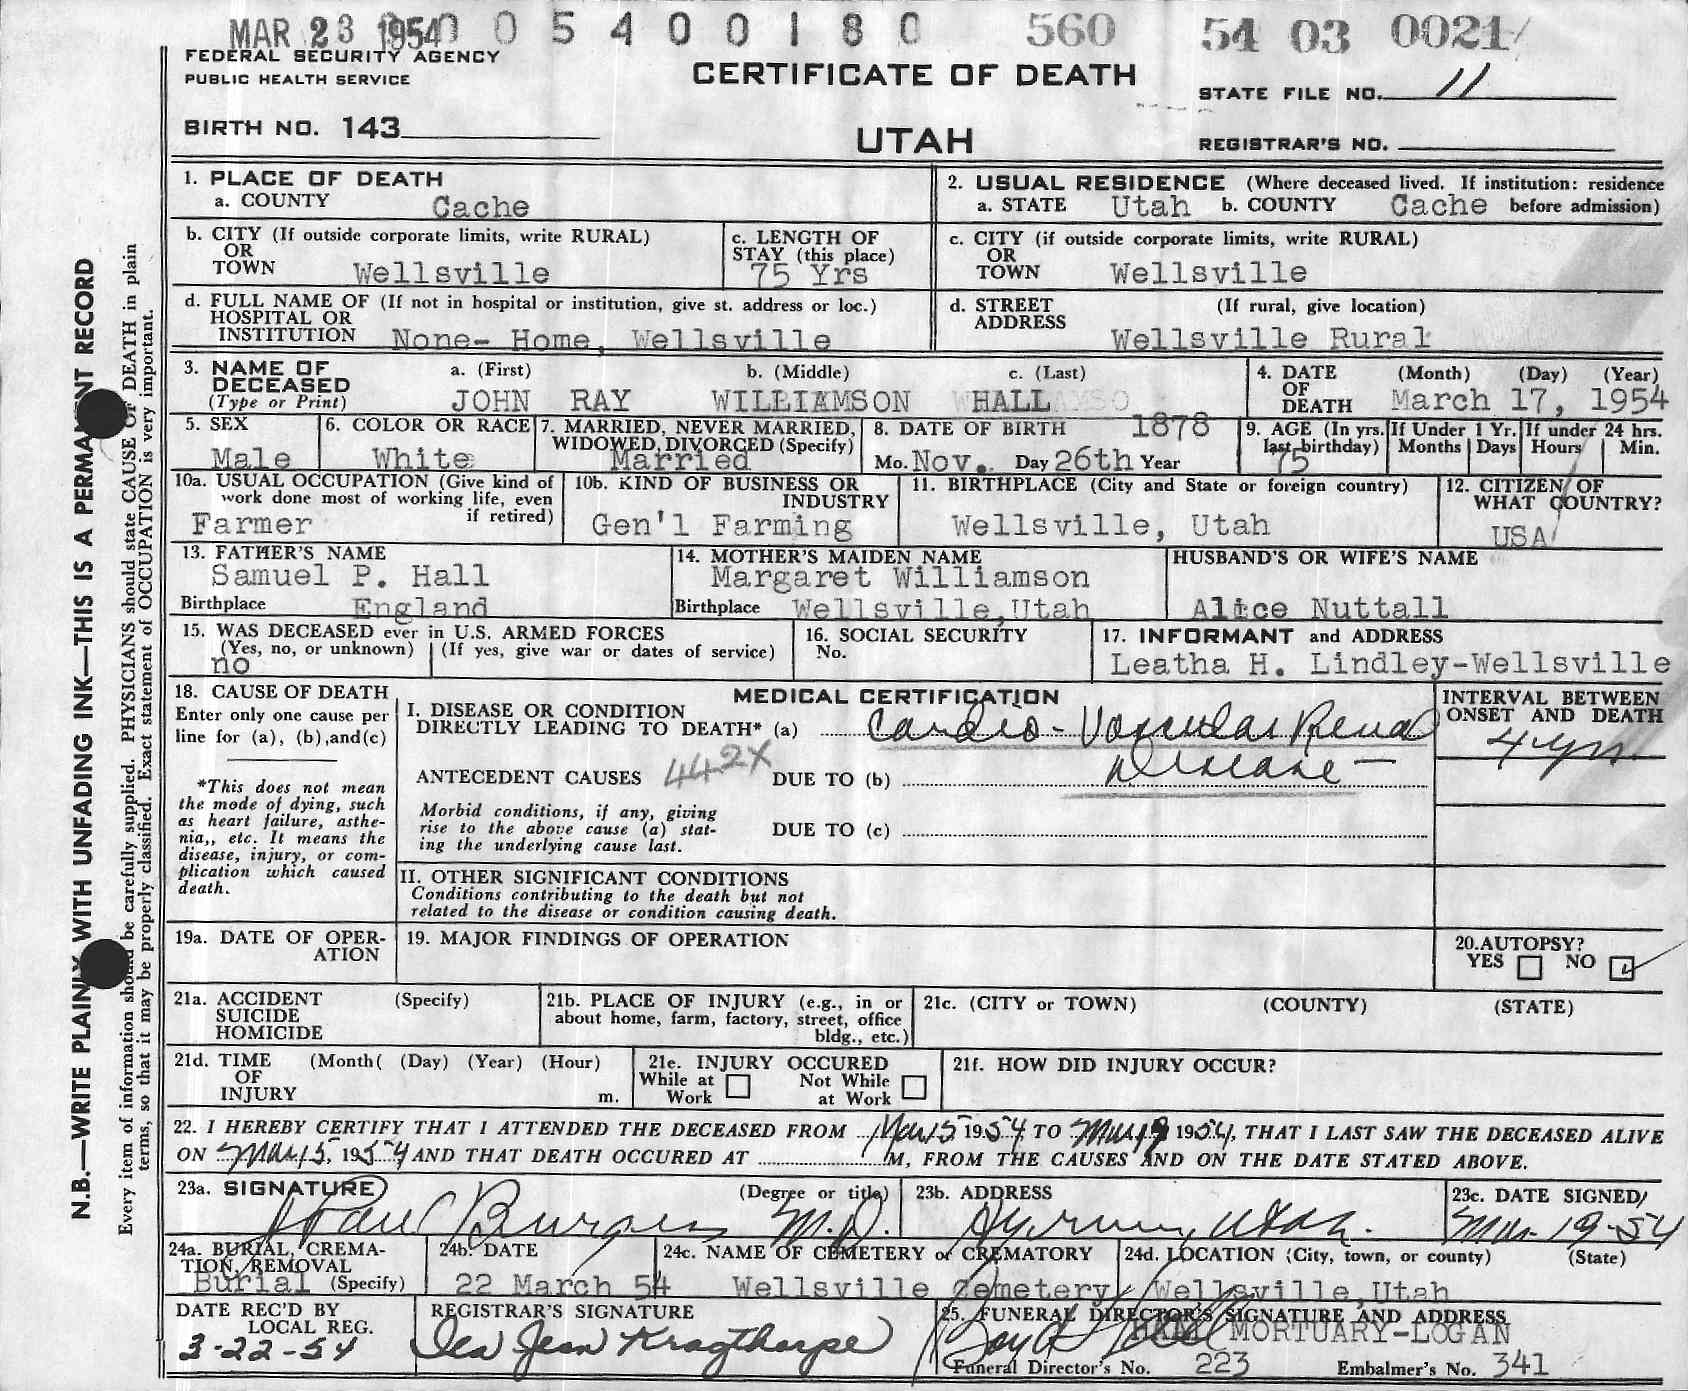 MAR 23 1954 0 0 5 4 0 0 1 8 0 560 54 03 0021
FEDERAL SECURITY AGENCY
PUBLIC HEALTH SERVICE
CERTIFICATE OF DEATH
STATE FILE NO. 11
BIRTH NO. 143
UTAH
REGISTRAR'S NO.
1. PLACE OF DEATH
a. COUNTY Cache
2. USUAL RESIDENCE (Where deceased lived. If institution: residence
a. STATE Utah b. COUNTY Cache before admission)
b. CITY (If outside corporate limits, write RURAL)
OR
TOWN Wellsville
c. LENGTH OF
STAY (this place)
75 Yrs
c. CITY (if outside corporate limits, write RURAL)
OR
TOWN Wellsville
d. FULL NAME OF (If not in hospital or institution, give st. address or loc.)
HOSPITAL OR
INSTITUTION None- Home, Wellsville
d. STREET (If rural, give location)
ADDRESS
Wellsville Rural
3. NAME OF a. (First) b. (Middle) c. (Last)
DECEASED
(Type or Print) JOHN RAY WILLIAMSON HALL
4. DATE (Month) (Day) (Year)
OF
DEATH March 17, 1954
5. SEX
Male
6. COLOR OR RACE
White
7. MARRIED, NEVER MARRIED,
WIDOWED, DIVORCED (Specify)
Married
8. DATE OF BIRTH 1878
Mo. Nov. Day 26th Year
9. AGE (In yrs.
last birthday)
75
If Under 1 Yr.
Months Days
If under 24 hrs.
Hours Min.
10a. USUAL OCCUPATION (Give kind of
work done most of working life, even
if retired)
Farmer
10b. KIND OF BUSINESS OR
INDUSTRY
Gen'l Farming
11. BIRTHPLACE (City and State or foreign country)
Wellsville, Utah
12. CITIZEN OF
WHAT COUNTRY?
USA
13. FATHER'S NAME
Samuel P. Hall
Birthplace England
14. MOTHER'S MAIDEN NAME
Margaret Williamson
Birthplace Wellsville, Utah
HUSBAND'S OR WIFE'S NAME
Alice Nuttall
15. WAS DECEASED ever in U.S. ARMED FORCES
(Yes, no, or unknown) (If yes, give war or dates of service)
no
16. SOCIAL SECURITY
No.
17. INFORMANT and ADDRESS
Leatha H. Lindley-Wellsville
18. CAUSE OF DEATH
Enter only one cause per
line for (a), (b), and (c)
*This does not mean
the mode of dying, such
as heart failure, asthe-
nia,, etc. It means the
disease, injury, or com-
plication which caused
death.
MEDICAL CERTIFICATION
I. DISEASE OR CONDITION
DIRECTLY LEADING TO DEATH* (a) Cardio-Vascular Renal
ANTECEDENT CAUSES 442X DUE TO (b) Disease-
Morbid conditions, if any, giving
rise to the above cause (a) stat-
ing the underlying cause last.
DUE TO (c)
INTERVAL BETWEEN
ONSET AND DEATH
4 yrs.
II. OTHER SIGNIFICANT CONDITIONS
Conditions contributing to the death but not
related to the disease or condition causing death.
19a. DATE OF OPER-
ATION
19. MAJOR FINDINGS OF OPERATION
20. AUTOPSY?
YES NO
21a. ACCIDENT (Specify)
SUICIDE
HOMICIDE
21b. PLACE OF INJURY (e.g., in or
about home, farm, factory, street, office
bldg., etc.)
21c. (CITY or TOWN) (COUNTY) (STATE)
21d. TIME (Month( (Day) (Year) (Hour)
OF
INJURY m.
21e. INJURY OCCURED
While at Not While
Work at Work
21f. HOW DID INJURY OCCUR?
22. I HEREBY CERTIFY THAT I ATTENDED THE DECEASED FROM Mar 15 1954 TO 1954, THAT I LAST SAW THE DECEASED ALIVE
ON Mar 15, 1954 AND THAT DEATH OCCURED AT M, FROM THE CAUSES AND ON THE DATE STATED ABOVE.
23a. SIGNATURE (Degree or title)
Burgess M.D.
23b. ADDRESS
Hyrum, Utah.
23c. DATE SIGNED
Mar. 19-54
24a. BURIAL, CREMA-
TION, REMOVAL
Burial (Specify)
24b. DATE
22 March 54
24c. NAME OF CEMETERY or CREMATORY
Wellsville Cemetery
24d. LOCATION (City, town, or county) (State)
Wellsville, Utah
DATE REC'D BY
LOCAL REG.
3-22-54
REGISTRAR'S SIGNATURE
Jean Kragthorpe
25. FUNERAL DIRECTOR'S SIGNATURE AND ADDRESS
HALL MORTUARY-LOGAN
Funeral Director's No. 223 Embalmer's No. 341
N.B.—WRITE PLAINLY WITH UNFADING INK—THIS IS A PERMANENT RECORD
Every item of information should be carefully supplied. PHYSICIANS should state CAUSE OF DEATH in plain
terms, so that it may be properly classified. Exact statement of OCCUPATION is very important.